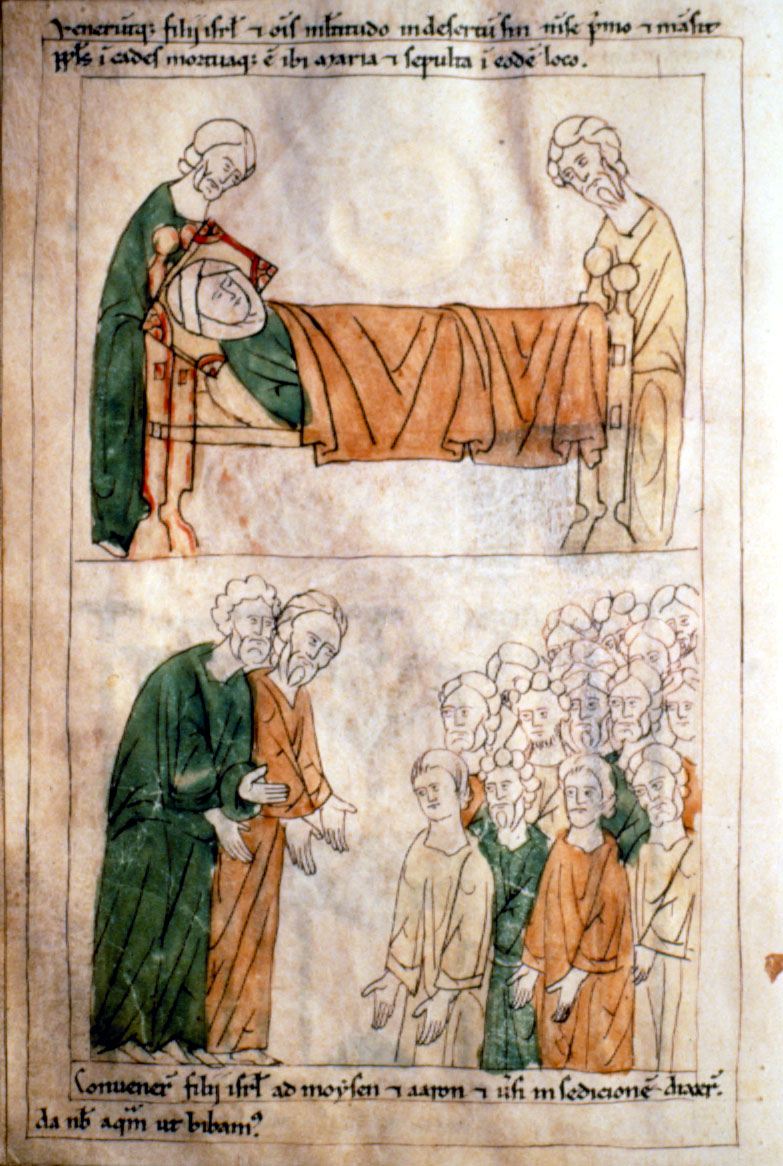 Venerūtqꝫ filij isrl̄ ⁊ oīs ml̄titudo in desertū sin mīse p̄mo ⁊ māsit
ppl̄s ī cades mortuaqꝫ ē ibi maria ⁊ sepulta ī eodē loco.
Convener̄ filij isrl̄ ad moysen ⁊ aaron ⁊ v̄si in sedicionē dixer̄.
da nb̄ aq̄m ut bibamꝰ